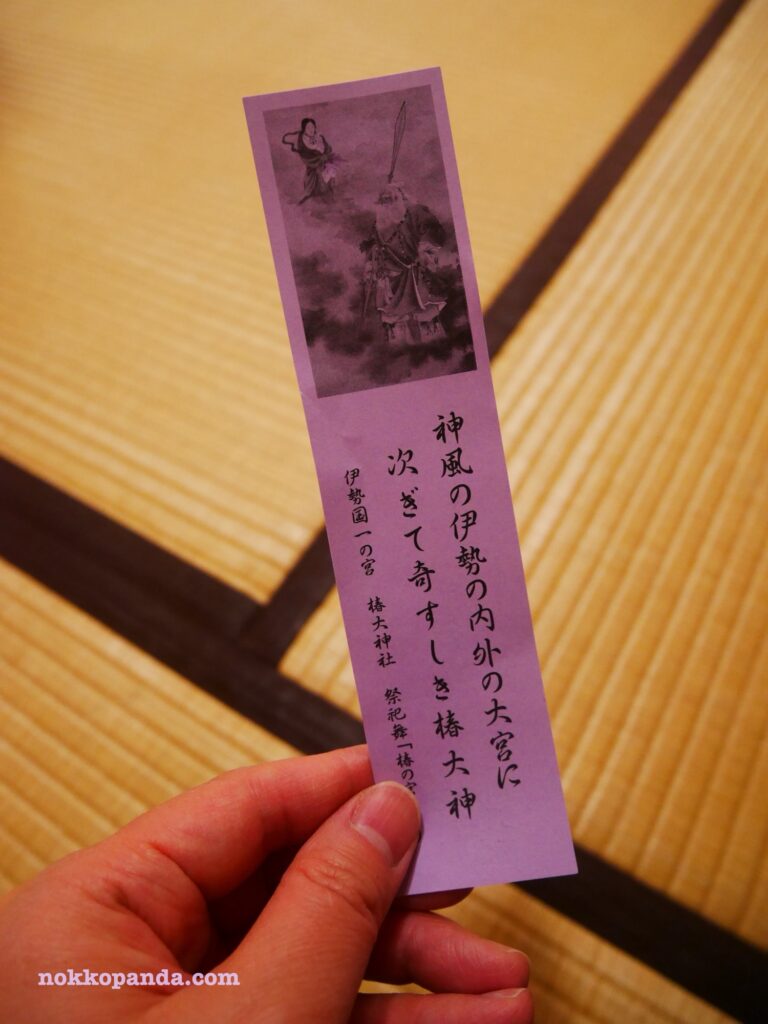 神風の伊勢の内外の大宮に
次ぎて奇すしき椿大神
伊勢国一の宮 椿大神社 祭祀舞「椿の宮
nokkopanda.com